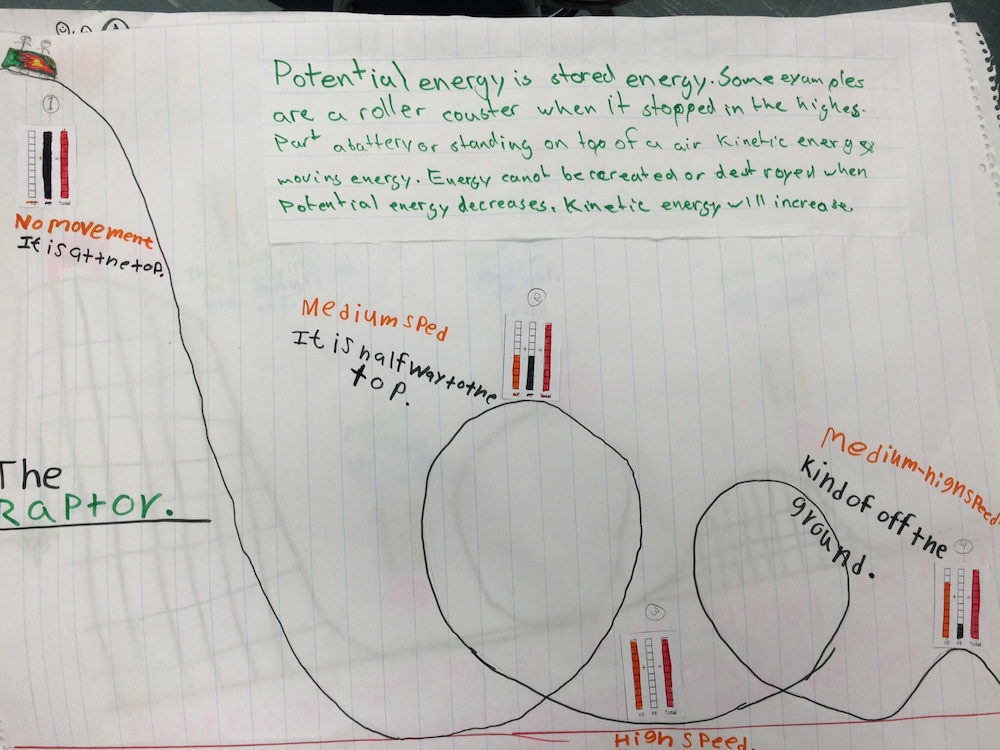 Potential energy is stored energy. Some examples
are a roller couster when it stopped in the highes.
Part abattery or standing on top of a air Kinetic energ
moving energy. Energy canot be cereated or dest royed when
Potential energy decreases, Kinetic energy will increase.
1
KE PE Total
No movement
It is at the top.
2
KE PE Total
Medium sped
It is half way to the
top.
The
Raptor.
Medium-high speed.
Kind of off the
ground.
4
KE PE Total
3
KE PE Total
High speed.